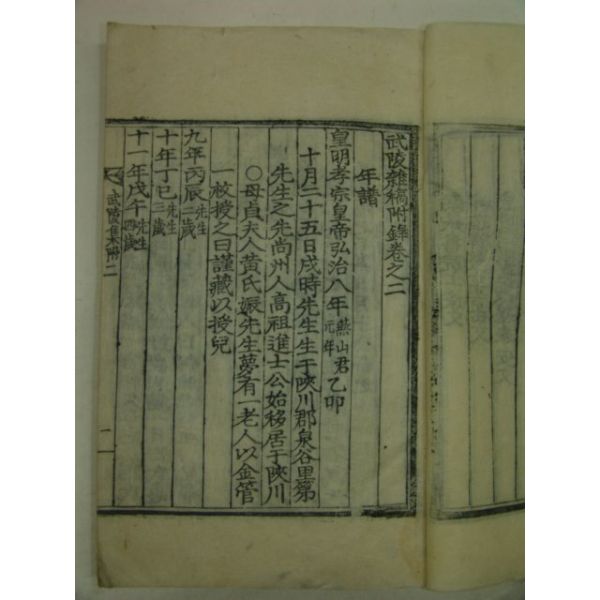 武陵雜稿附錄卷之二
年譜
皇明孝宗皇帝弘治八年燕山君元年乙卯
十月二十五日戌時先生生于陜川郡泉谷里第
先生之先尚州人高祖進士公始移居于陜川
○母貞夫人黃氏娠先生夢有一老人以金管
一枚授之曰謹藏以授兒
九年丙辰先生二歲
十年丁巳先生三歲
十一年戊午先生四歲
武陵集附二
二